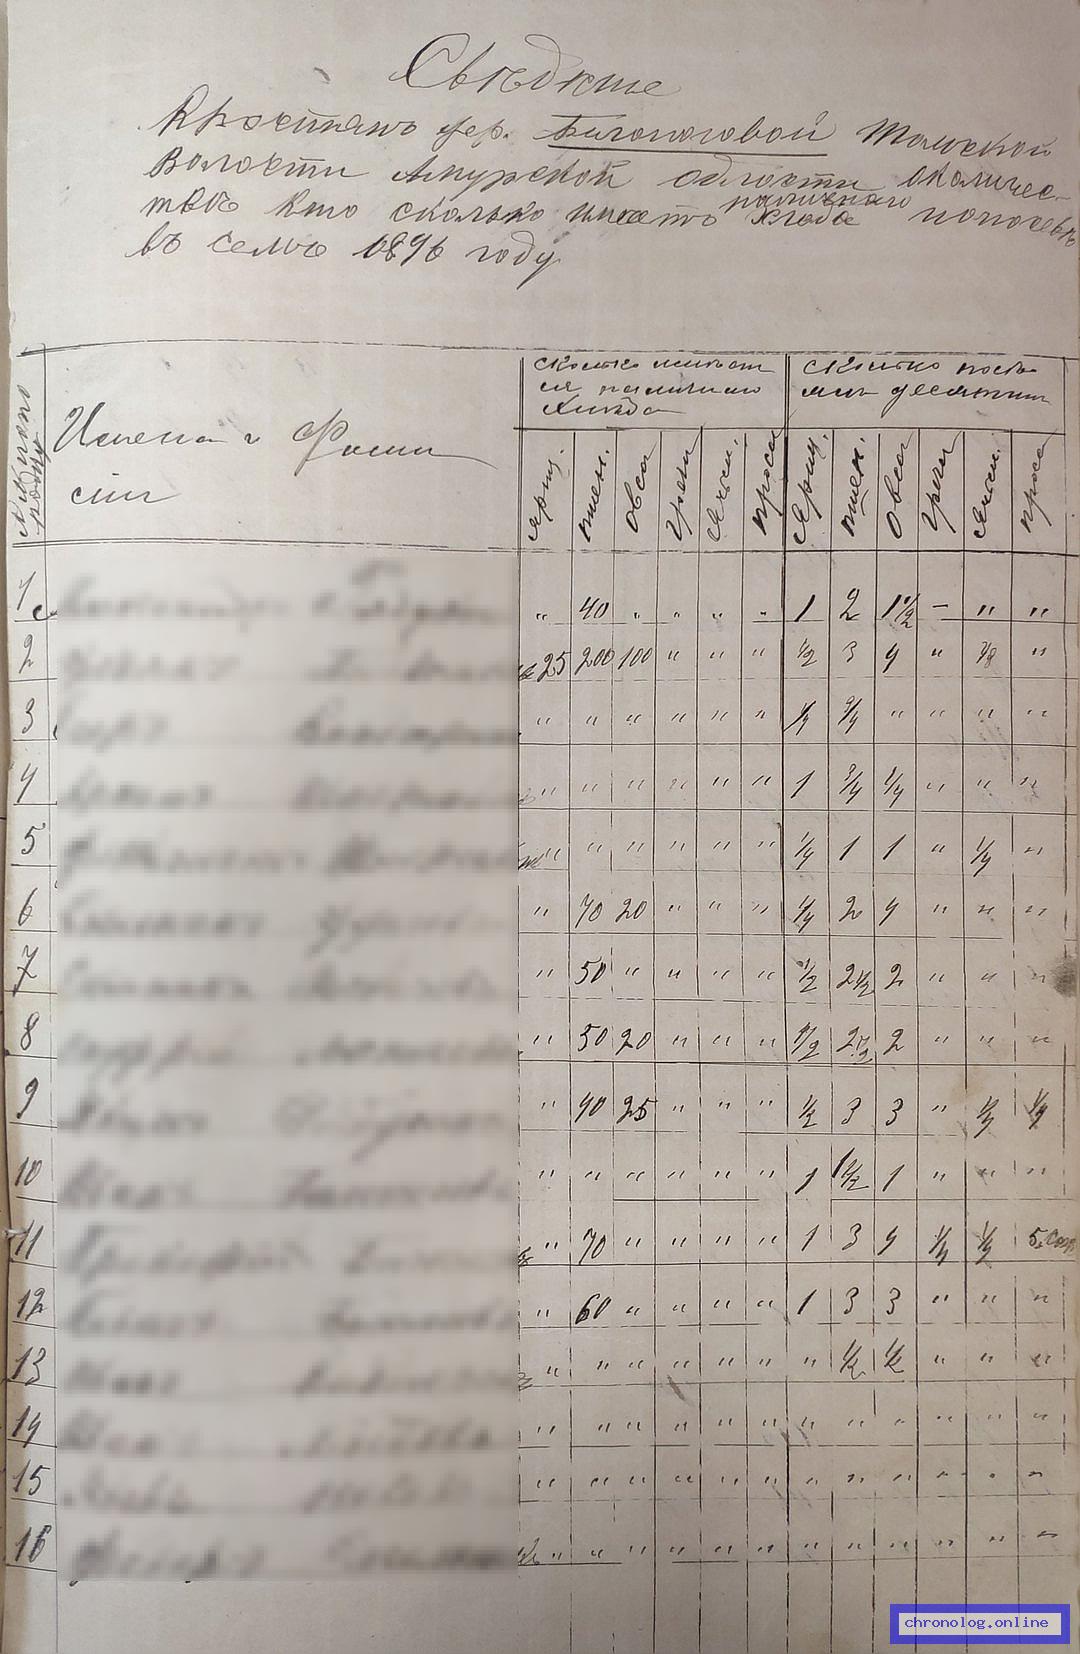 Сведение
Крестьянъ дер. Белоноговой Томской
волости Амурской области околичес-
твѣ кто сколько имеетъ наличнаго хлеба и посевъ
въ семъ 1896 году
№№ по по
рядку
Имена и Фами
лии
Сколько имѣет
ся наличнаго
Хлѣба
Сколько посѣ
яли десятин
яриц. пшен. овса Гречи Ячмен. проса Ярич. пшен. овса Гречи Ячмен. проса
1 " 40 " " " " 1 2 1 1/2 — " "
2 25 200 100 " " " 1/2 3 4 " 1/8 "
3 " " " " " " 1/4 3/4 " " " "
4 " " " " " " 1 3/4 1/4 " " "
5 " " " " " " 1/4 1 1 " 1/4 "
6 " 70 20 " " " 1/4 2 4 " " "
7 " 50 " " " " 1/2 2 1/2 2 " " "
8 " 50 20 " " " 1/2 2 1/2 2 " " "
9 " 40 25 " " " 1/2 3 3 " 1/4 1/4
10 " " " " " " 1 1 1/2 1 " " "
11 " 70 " " " " 1 3 4 1/4 1/4 5
12 " 60 " " " " 1 3 3 " " "
13 " " " " " " " 1/2 1/2 " " "
14 " " " " " " " " " " " "
15 " " " " " " " " " " " "
16 " " " " " " " " " " " "
chronolog.online